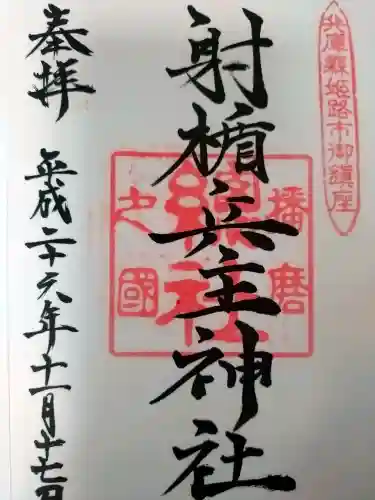 兵庫縣姫路市御鎮座
射楯兵主神社
播磨
總社
之國
奉拝
平成二十六年十一月十七日